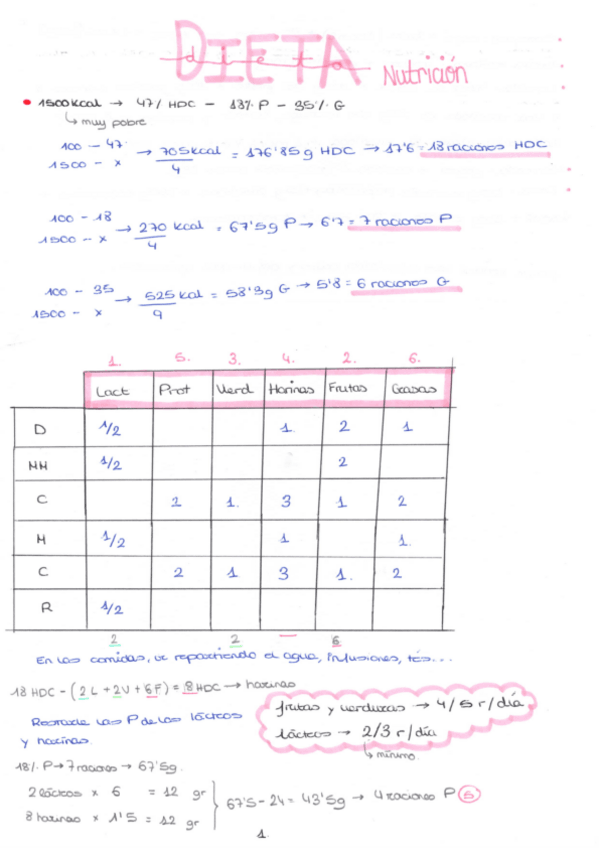 DIETA
dieta
Nutrición
1500 kcal → 47% HDC - 18% P - 35% G
↳ muy pobre
100 - 47
1500 - x → 705 kcal / 4 = 176'85 g HDC → 17'6 = 18 raciones HDC
100 - 18
1500 - x → 270 kcal / 4 = 67'5 g P → 6'7 = 7 raciones P
100 - 35
1500 - x → 525 kcal / 9 = 58'3 g G → 5'8 = 6 raciones G
1. 5. 3. 4. 2. 6.
Lact Prot Verd Harinas Frutas Grasas
D 1/2 1. 2 1
MM 1/2 2
C 2 1. 3 1 2
M 1/2 1 1.
C 2 1 3 1. 2
R 1/2
2 2 6
En las comidas, ir repartiendo el agua, infusiones, tés...
18 HDC - (2L + 2V + 6F) = 8 HDC → harinas
Restarle las P de los lácteos
y harinas.
frutas y verduras → 4/5 r/día
lácteos → 2/3 r/día
↳ mínimo
18% P → 7 raciones → 67'5g.
2 lácteos x 6 = 12 gr
8 harinas x 1'5 = 12 gr
67'5 - 24 = 43'5g → 4 raciones P (5)
1